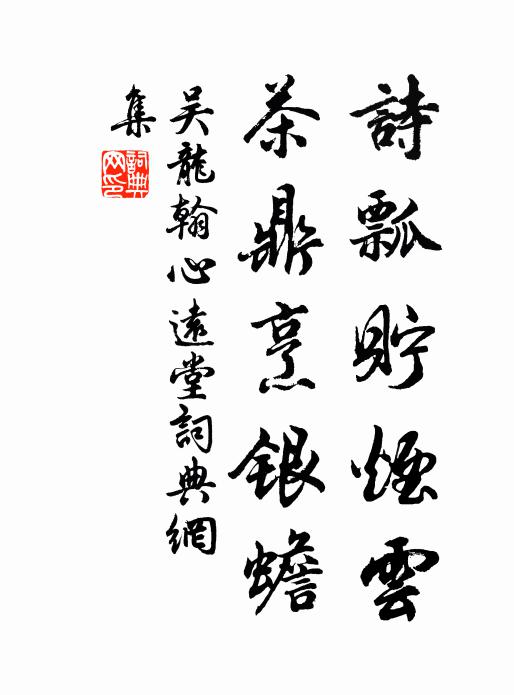 詩瓢貯煙雲
茶鼎烹銀蟾
吳龍翰心遠堂詞典網
集
詞典網印